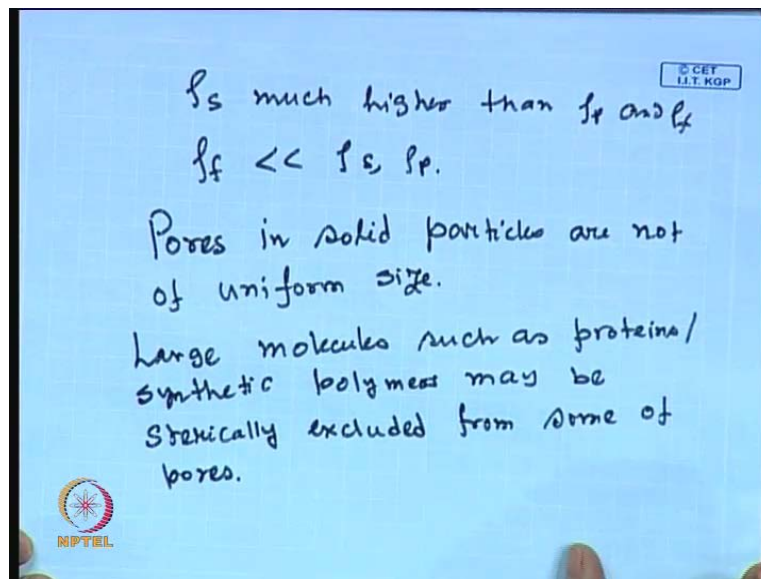 © CET
I.I.T. KGP
ρs much higher than ρp and ρf
ρf << ρs, ρp.
Pores in solid particles are not
of uniform size.
Large molecules such as proteins/
synthetic polymers may be
sterically excluded from some of
pores.
NPTEL